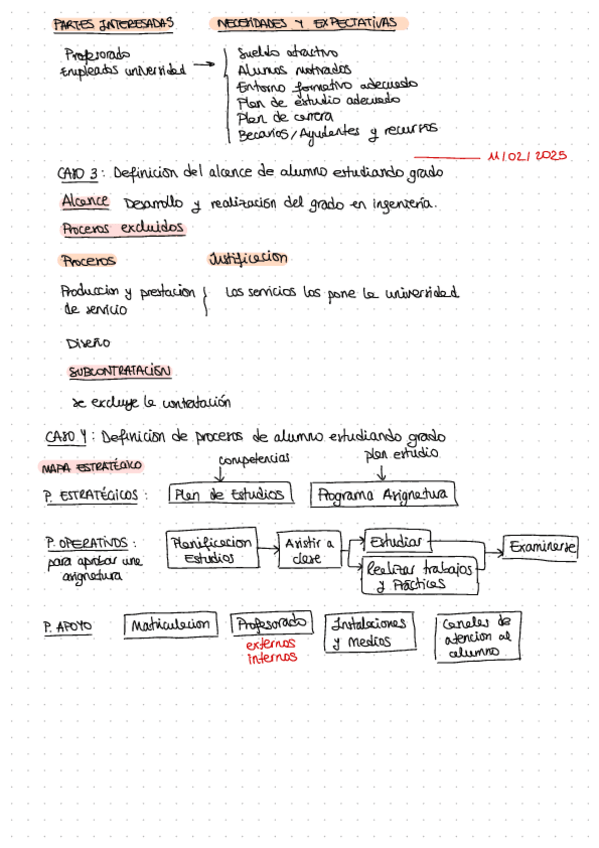 PARTES INTERESADAS NECESIDADES Y EXPECTATIVAS
Profesorado
Empleados universidad
Sueldo atractivo
Alumnos motivados
Entorno formativo adecuado
Plan de estudio adecuado
Plan de carrera
Becarios/Ayudantes y recursos
11/02/2025
CASO 3: Definicion del alcance de alumno estudiando grado
Alcance Desarrollo y realización del grado en ingeniería.
Procesos excluidos
Procesos Justificacion
Produccion y prestacion de servicio
Los servicios los pone la universidad
Diseño
SUBCONTRATACIÓN
se excluye la contratación
CASO 4: Definicion de procesos de alumno estudiando grado
MAPA ESTRATÉGICO
competencias plan estudio
P. ESTRATÉGICOS: Plan de Estudios Programa Asignatura
P. OPERATIVOS:
para aprobar una
asignatura
Planificacion
Estudios
Asistir a
clase
Estudiar
Realizar trabajos
y Prácticas
Examinarse
P. APOYO Matriculacion Profesorado
externos
internos
Instalaciones
y Medios
Canales de
atencion al
alumno